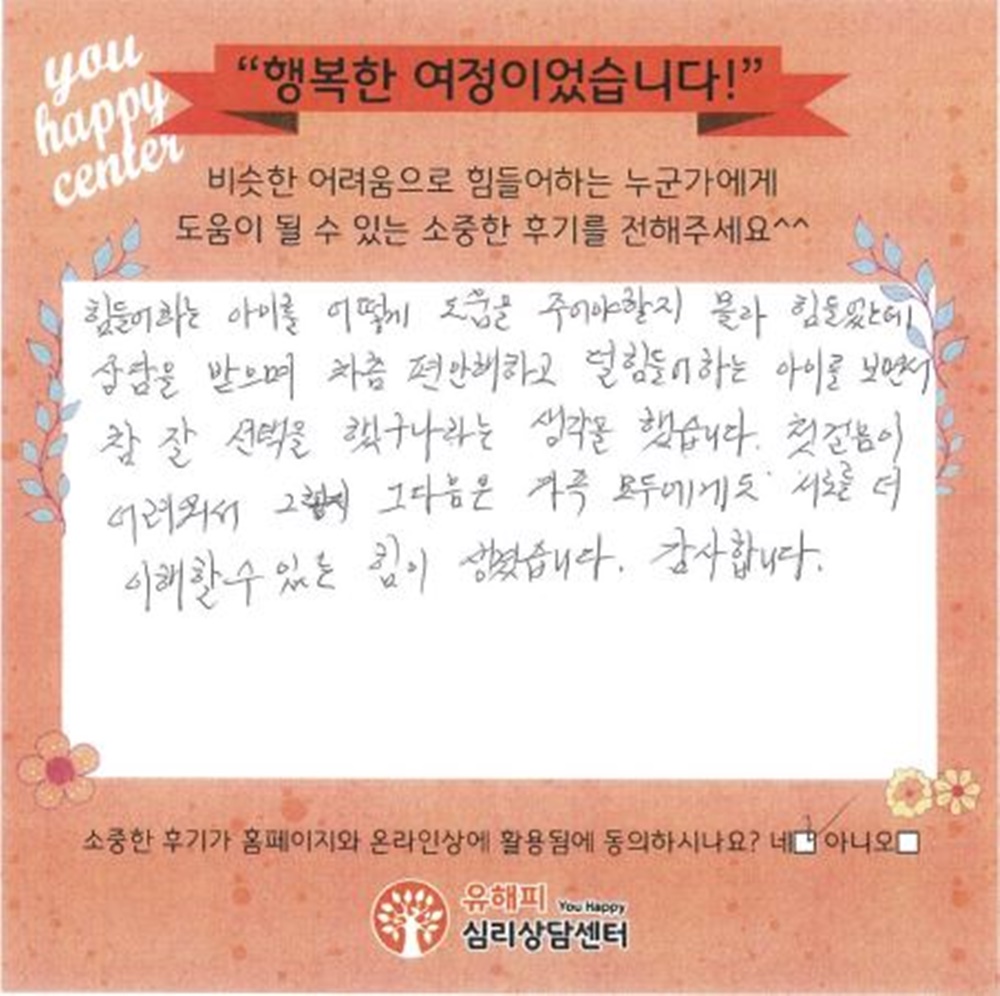 you
happy
center
“행복한 여정이었습니다!”
비슷한 어려움으로 힘들어하는 누군가에게
도움이 될 수 있는 소중한 후기를 전해주세요^^
힘들어하는 아이를 어떻게 도움을 주어야할지 몰라 힘들었는데
상담을 받으며 차츰 편안해하고 덜힘들어하는 아이를 보면서
참 잘 선택을 했구나라는 생각을 했습니다. 첫걸음이
어려워서 그렇지 그다음은 가족 모두에게도 서로를 더
이해할수 있는 힘이 생겼습니다. 감사합니다.
소중한 후기가 홈페이지와 온라인상에 활용됨에 동의하시나요? 네 아니오
유해피 You Happy
심리상담센터